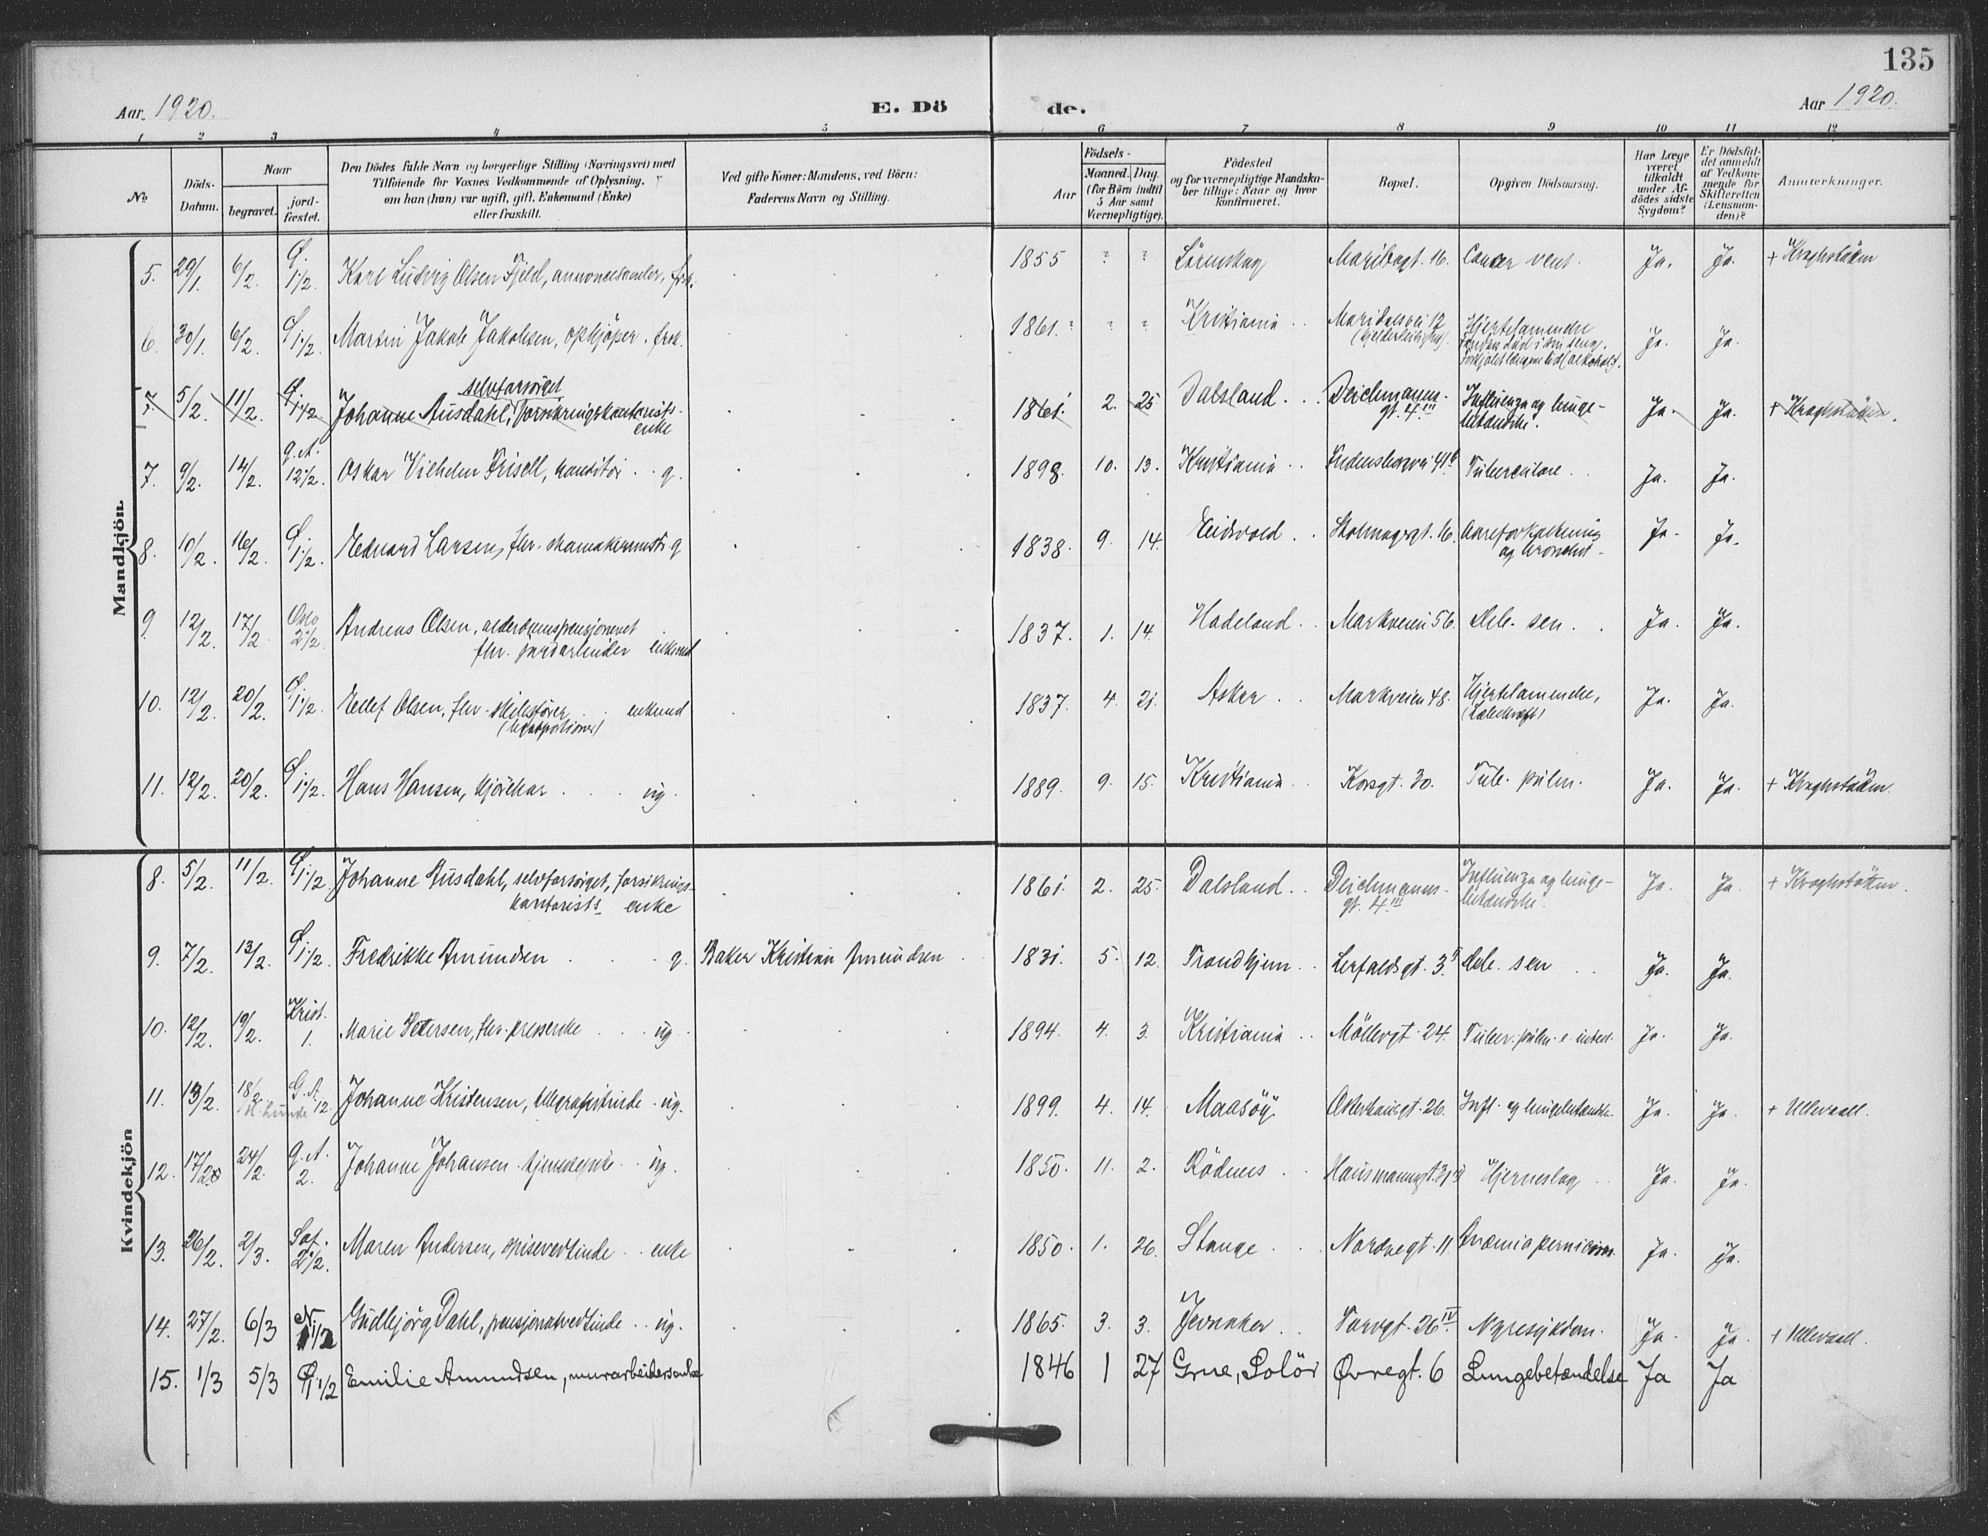 135
Aar. 1920.
E. Dö
de.
Aar 1920.
1 2 3 4 5 6 7 8 9 10 11 12
No
Döds-
Datum.
Naar
begravet.
jord-
fæstet.
Den Dödes fulde Navn og borgerlige Stilling (Næringsvei) med
Tilföiende for Voxnes Vedkommende af Oplysning,
om han (hun) var ugift, gift, Enkemand (Enke)
eller fraskilt.
Ved gifte Koner: Mandens, ved Börn:
Faderens Navn og Stilling.
Födsels-
Aar
Maaned. Dag.
(for Börn indtil
5 Aar samt
Værnepligtige).
Födested
og for værnepligtige Mandska-
ber tillige: Naar og hvor
konfirmeret.
Bopæl.
Opgiven Dödsaarsag.
Har Læge
været
tilkaldt
under Af-
dödes sidste
Sygdom?
Er Dödsfal-
det anmeldt
af Vedkom-
mende for
Skifteretten
(Lensman-
den)?
Anmerkninger.
Mandkjön.
5. 29/1. 6/2. 1 1/2. Karl Ludvig Olsen Fjeld, annoncesamler, frsk. 1855 " " Marikagt. 16. Cancer vent. Ja. Ja. +
6. 30/1. 6/2. 1 1/2. Martin Jakob Jakobsen, opkjöper. frsk. 1861. " " Kristiania Maridalsvei 17 Hjertelammelse Ja. Ja.
7. 5/2. 11/2. 1 1/2 Johanne Ausdahl, selvforsörget forsikringskontorists-
enke
1861. 2. 25 Dalsland. Deichmanns-
gt. 4 III
Influenza og lunge-
betændelse. Ja. Ja. +
7. 9/2. 14/2. G.A. 12 1/2. Oskar Vilhelm Frisell, konditor g. 1898. 10. 13. Kristiania Tuberculose Ja. Ja.
8. 10/2. 16/2. 1 1/2. Edvard Larsen, fhv. skomakermester g 1838. 9. 14. Eidsvold Ja. Ja.
Aareforkalkning
og bronchit
9. 12/2. 17/2 Oslo 2 1/2. Andreas Olsen, alderdomspensjoneret
fhv. jordarbeider enkemd
1837. 1. 14. Hadeland Markveien 56. Deb. sen. Ja. Ja.
10. 12/2. 20/2. 1 1/2. Edlef Olsen, fhv. enkemd 1837. 4. 21. Asker Markveien 48. Hjertelammelse, Ja. Ja.
11. 12/2. 20/2. 1 1/2. Hans Hansen, kjörekar ug. 1889. 9. 15. Kristiania Korsgt. 30. Tub. pulm. Ja. Ja. +
Kvindekjön
8. 5/2. 11/2. 1 1/2 Johanne Ausdahl, selvforsörget, forsikrings-
kontorists enke
1861. 2. 25. Dalsland Deichmanns-
gt. 4. III
Influenza og lunge-
betændelse. Ja. Ja +
9. 7/2. 13/2. 1 1/2. Fredrikke Amundsen g. Baker Kristian Amundsen 1831. 5. 12. Trondhjem Lerfaldsgt. 3. Deb. sen Ja. Ja.
10. 12/2. 19/2. Krist. 1. Marie Petersen, fhv. presserske ug. 1894. 4. 3. Kristiania Möllergt. 24. Tuber. pulm. e. intest. Ja. Ja.
11. 13/2. 18/2. G.A. 12 Johanne Kristensen, telegrafistinde. ug. 1899. 4. 14. Maasöy. Osterhausgt. 26. Infl. og lungebetændelse Ja. Ja. + Ullevaal.
12. 17/2 24/2. G.A. 2. Johanne Johansen. ug. 1850. 11. 2. Rödenes Hausmannsgt. Hjerneslag Ja. Ja.
13. 26/2. 2/3. Sof. 2 1/2. Maren Andersen, spisevertinde enke 1850. 1. 26. Stange Nordregt. 11. Anæmia perniciosa Ja. Ja.
14. 27/2. 6/3 N. 1 1/2 Gudbjörg Dahl, pensjonatvertinde ug. 1865. 3. 3. Jevnaker Torvgt. 26 IV. Nyresykdom. Ja. Ja. + Ullevaal.
15. 1/3 5/3 1 1/2 Emilie Amundsen, murarbeidersenke 1846 1 27 Grue, Solör Øvregt. 6 Lungebetændelse Ja Ja